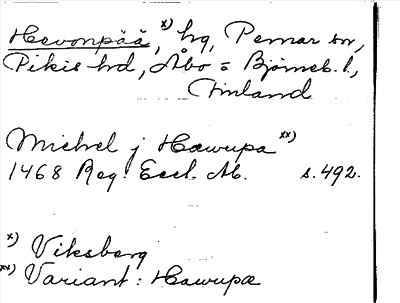 Hevonpää, x) hg, Pemar sn,
Pikis hd, Åbo = Björneb. l.,
Finland
Michel j Hawupa xx)
1468 Reg. Eccl. Ab. s. 492.
x) Viksberg
xx) Variant: Hawupæ